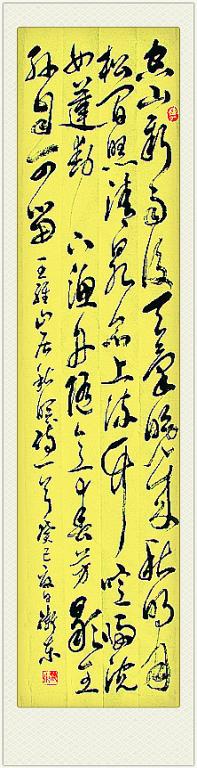 空山新雨後天氣晚來秋明月
松間照清泉石上流竹喧歸浣
女蓮動下漁舟隨意春芳歇王
孫自可留王維山居秋暝詩一首癸巳夏日衛東